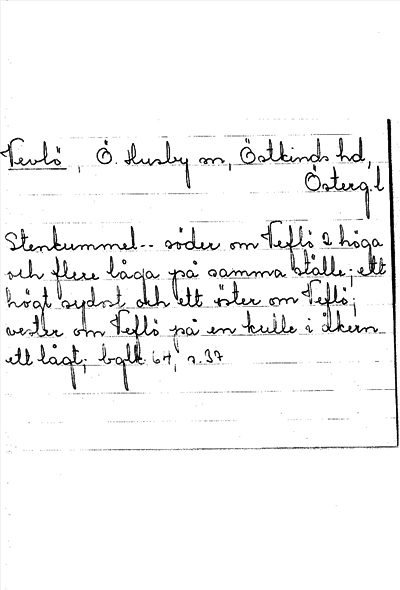 Vevlö, Ö. Husby sn, Östkinds hd,
Österg.l
Stenkummel-- söder om Veflö 2 höga
och flere låga på samma ställe; ett
högt sydost och ett öster om Veflö;
vester om Veflö på en kulle i åkern
ett lågt; bglk 64, s. 37